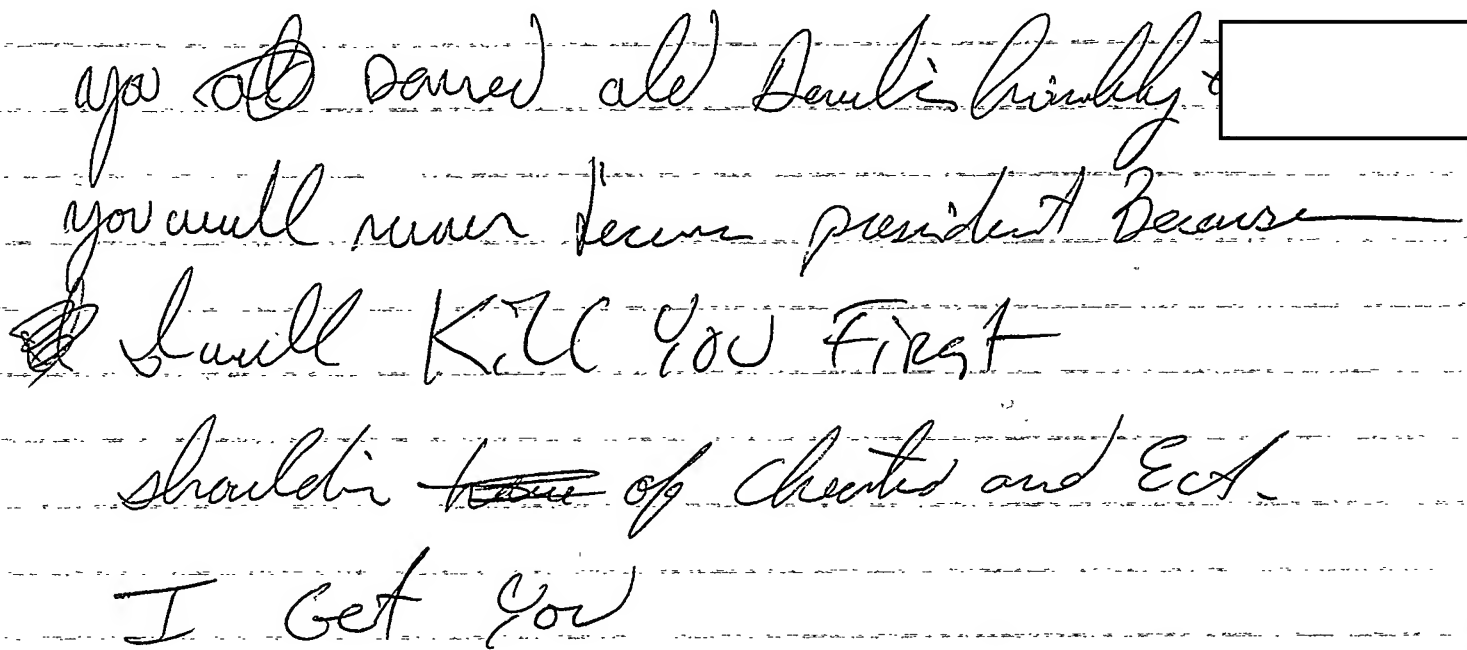 you old Devil
you will never become president Because
I will Kill You First
shouldin of cheated and Ect.
I Get You